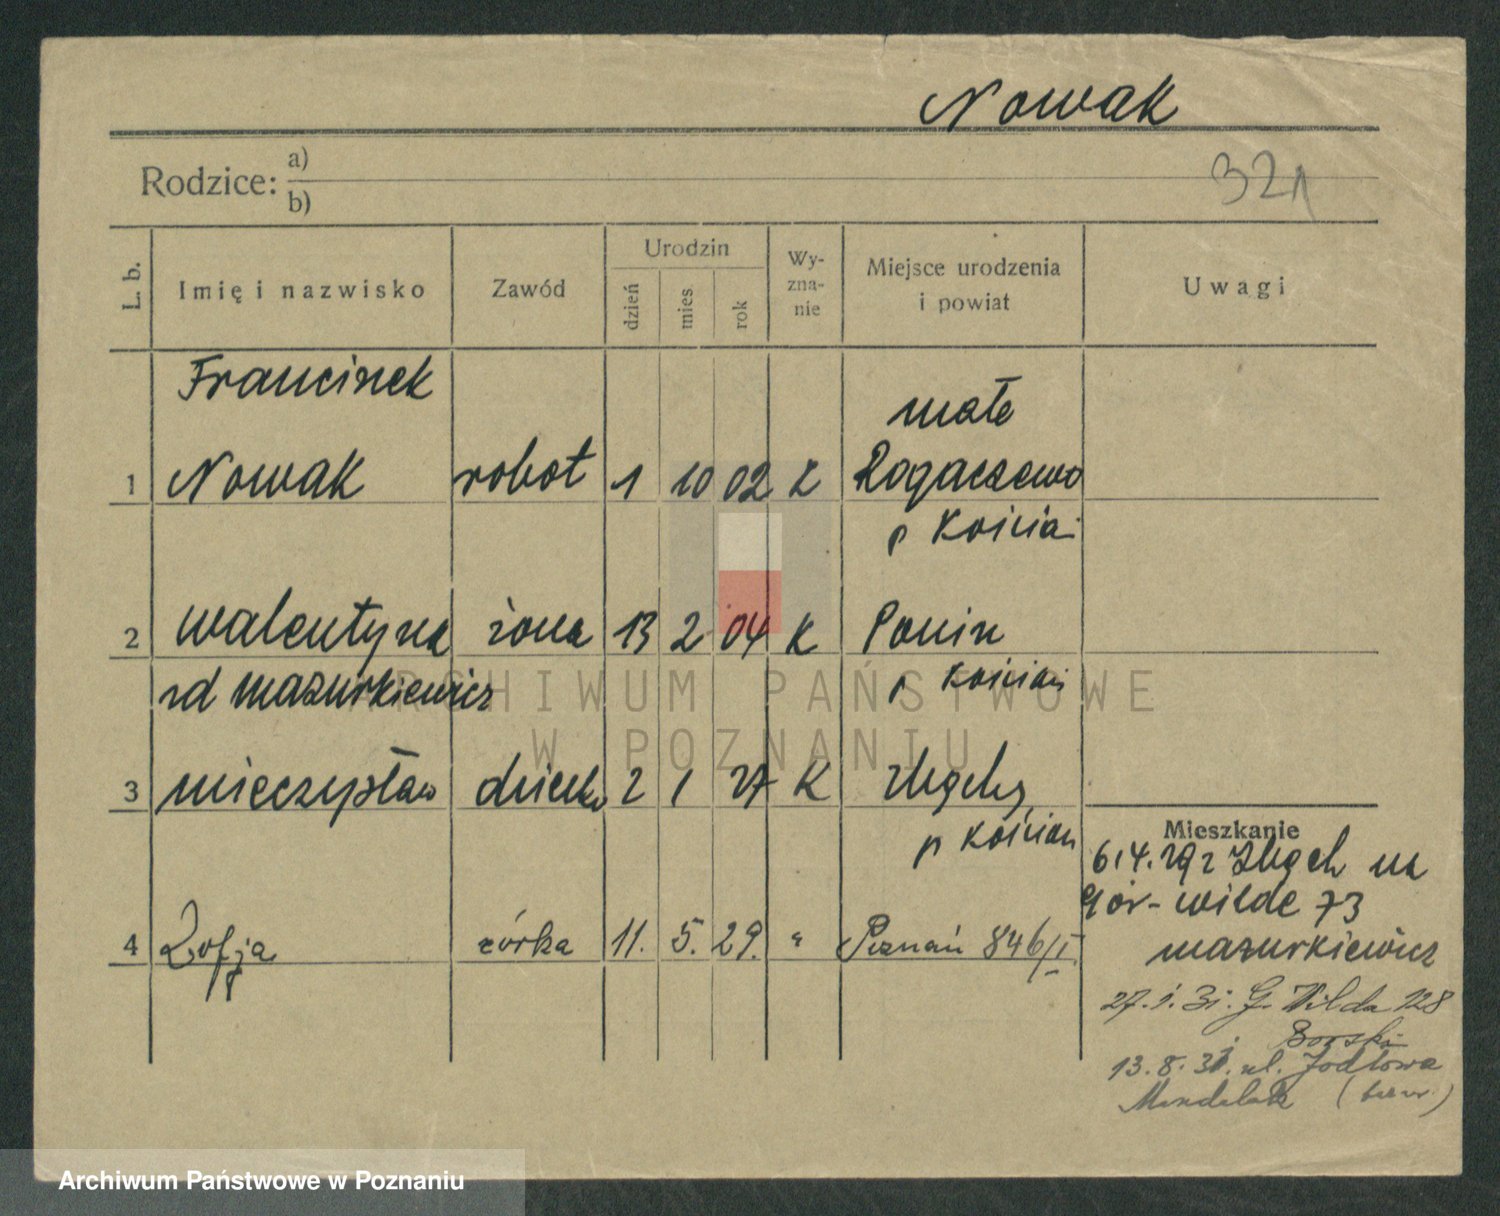 Nowak
Rodzice: a)
b)
321
L. b.
Imię i nazwisko
Zawód
Urodzin
dzień
mies
rok
Wy-
zna-
nie
Miejsce urodzenia
i powiat
Uwagi
Franciszek
małe
1 Nowak robot 1 10 02 K Rogaczewo
p Kościan
2 Walentyna żona 13 2 04 K Ponin
zd Mazurkiewicz p Kościan
3 Mieczysław dziecko 2 1 27 K Zbęchy
p Kościan
4 Zofja córka 11. 5. 29. " Poznań 846/I.
Mieszkanie
6.4.29 z Zbęch na
Gór-Wilde 73
Mazurkiewicz
27.1.31. G. Wilda 128
Borski
13.8.31. ul. Jodłowa
ARCHIWUM PAŃSTWOWE
W POZNANIU
Archiwum Państwowe w Poznaniu